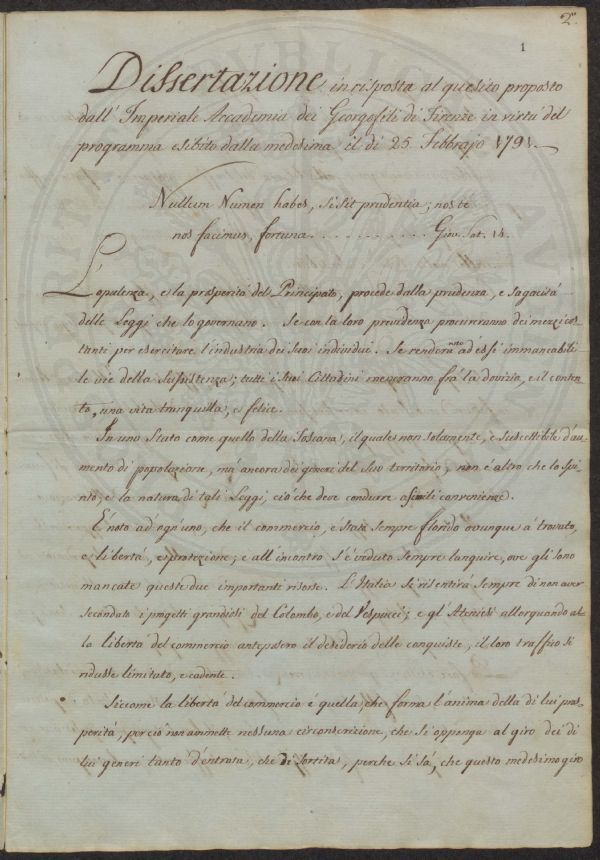 2º
1
Dissertazione in risposta al quesito proposto
dall' Imperiale Accademia dei Georgofili di Firenze in virtù del
programma esibito dalla medesima il dì 25 Febbrajo 1791.
Nullum Numen habes, si sit prudentia; nos te
nos facimus, fortuna . . . . . . . . . . Giov. Sat. 14.
L'opulenza, e la prosperità del Principato, procede dalla prudenza, e sagacità
delle Leggi che lo governano. Se con la loro previdenza procureranno dei mezzi cos-
tanti per esercitare l'industria dei suoi individui. Se renderanno ad essi immancabili
le vie della sussistenza; tutti i suoi Cittadini meneranno frà la dovizia, e il conten-
to, una vita tranquilla, e felice.
In uno Stato come quello della Toscana, il quale non solamente, e suscettibile d'au-
mento di popolazione, mà ancora dei generi del suo territorio, non è altro che lo spi-
rito, e la natura di tali Leggi, ciò che deve condurre a simili convenienze.
È noto ad ogn'uno, che il commercio, è stato sempre florido ovunque à trovato,
e libertà, e protezione; e all'incontro s'è veduto sempre languire, ove gli sono
mancate queste due importanti risorse. L'Italia si risentirà sempre di non aver
secondato i progetti grandiosi del Colombo, e del Vespucci; e gl'Ateniesi allorquando al-
la libertà del commercio anteposero il desiderio delle conquiste, il loro traffico si
ridusse limitato, e cadente.
Siccome la libertà del commercio è quella, che forma l'anima della di lui pros-
perità, perciò non ammette nessuna circonscrizione, che si opponga al giro dei di
lui generi tanto d'entrata, che di sortita, perche si sà, che questo medesimo giro